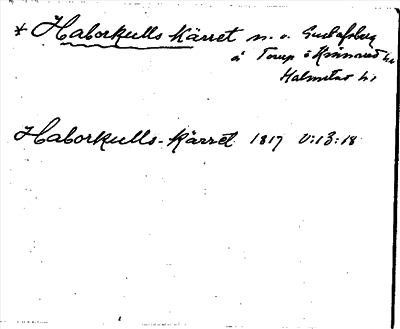 * Haborkulls kärret n. o. Gustafsberg
å Torup ö Kinnared hu
Halmstad h.,
Haborkulls-kärret 1817 V:13:18